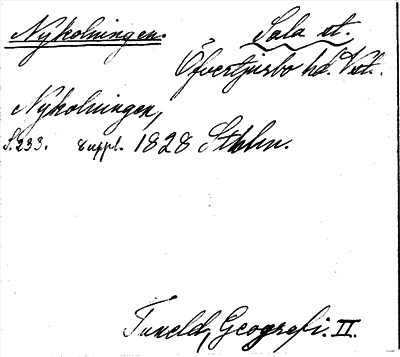 Nykolningen. Sala st.
Öfvertjurbo hd. Vtl.
Nykolningen,
S. 233. suppl. 1828 Sthlm.
Tuneld, Geografi. II.